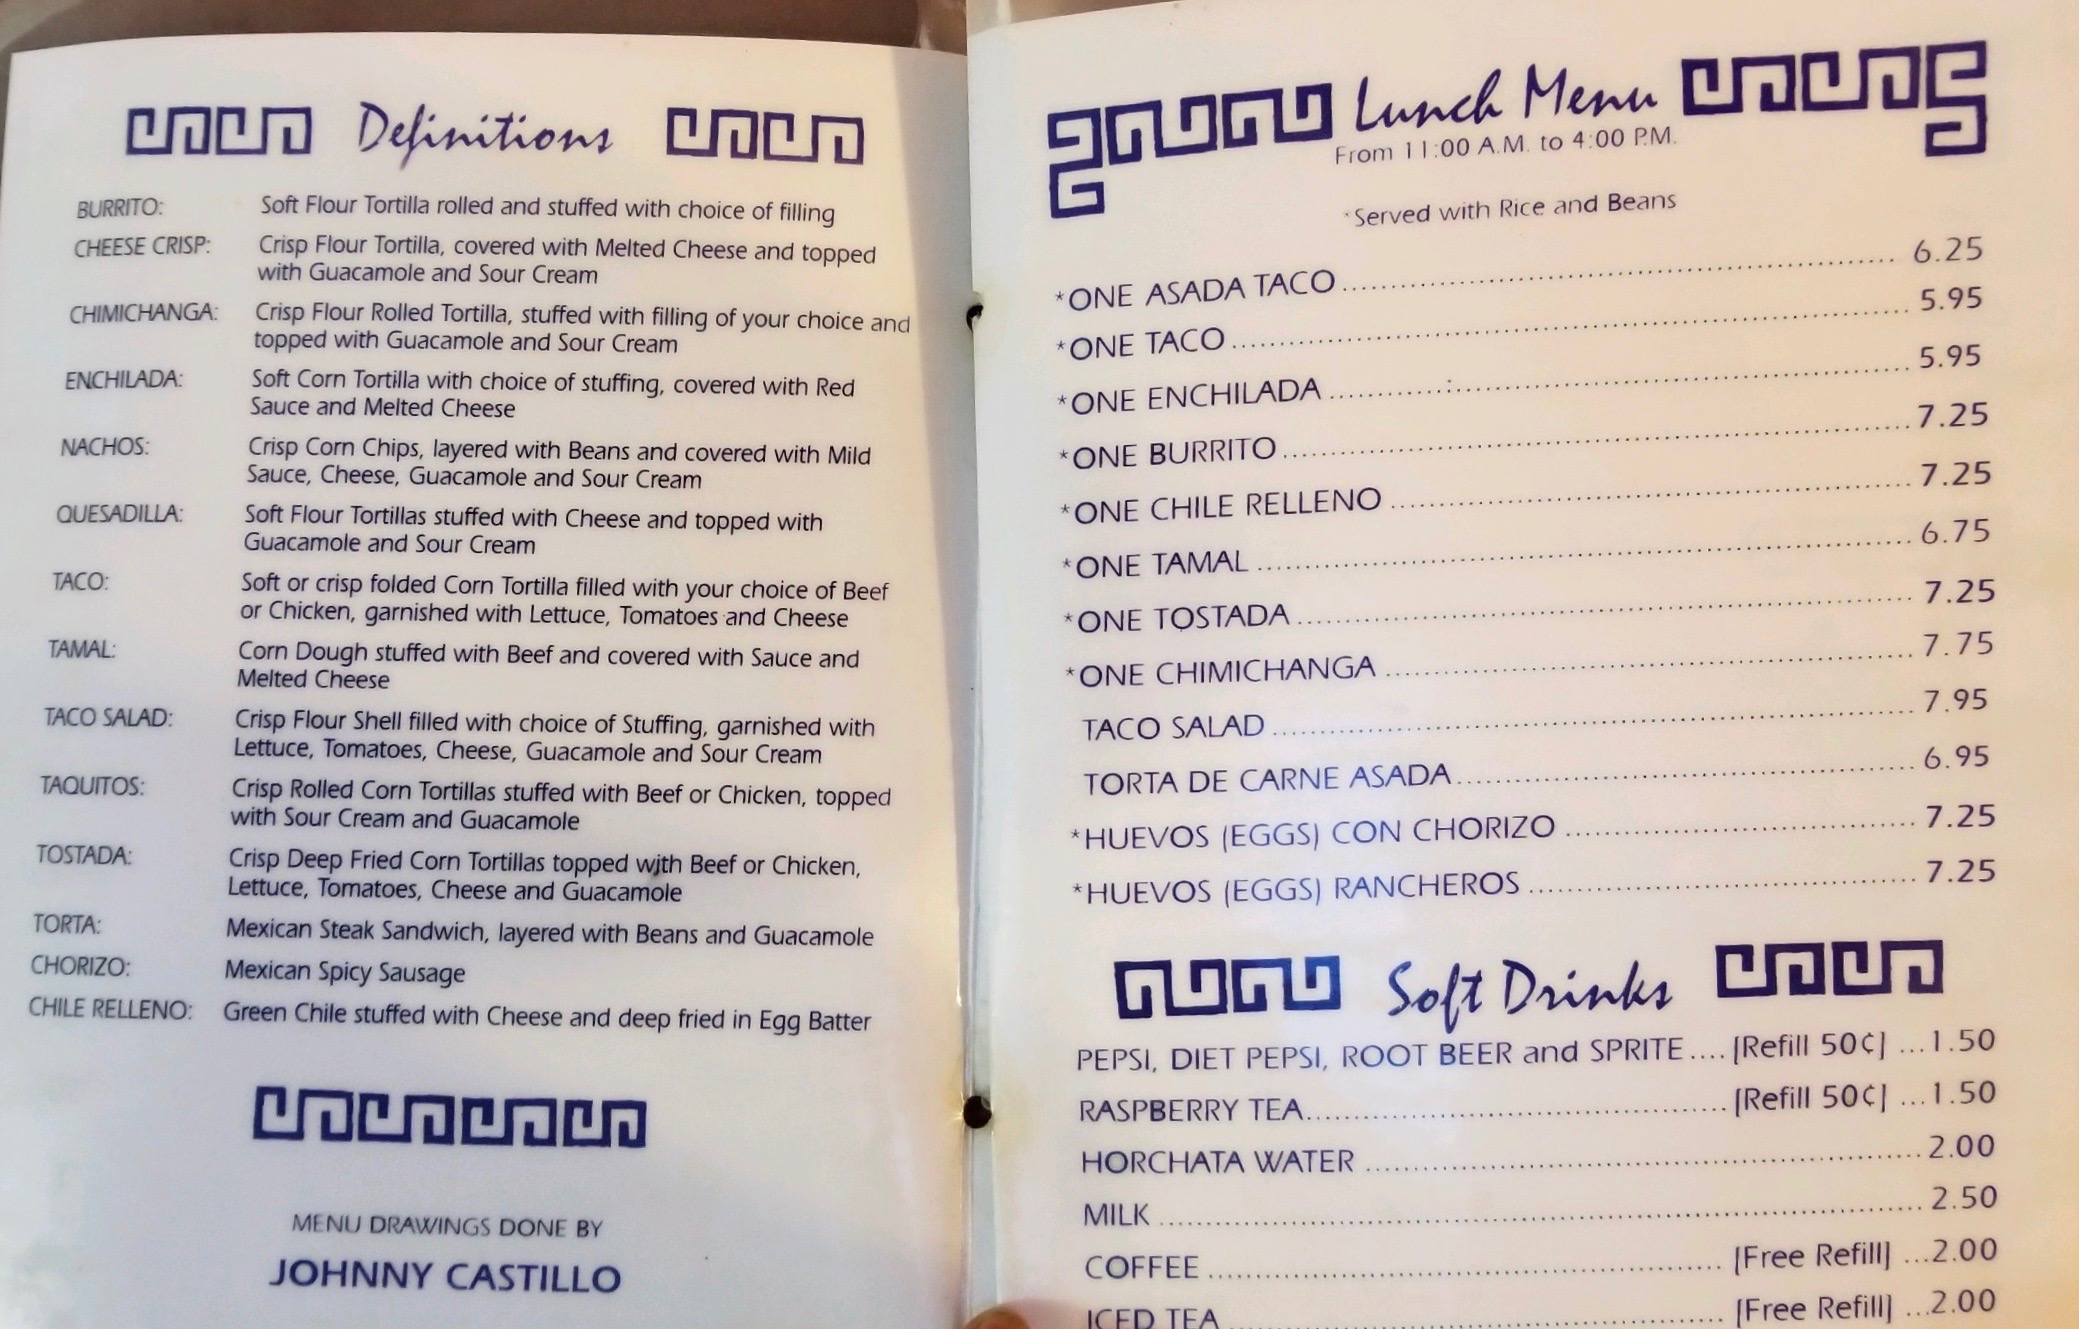 Definitions
BURRITO: Soft Flour Tortilla rolled and stuffed with choice of filling
CHEESE CRISP: Crisp Flour Tortilla, covered with Melted Cheese and topped
with Guacamole and Sour Cream
CHIMICHANGA: Crisp Flour Rolled Tortilla, stuffed with filling of your choice and
topped with Guacamole and Sour Cream
ENCHILADA: Soft Corn Tortilla with choice of stuffing, covered with Red
Sauce and Melted Cheese
NACHOS: Crisp Corn Chips, layered with Beans and covered with Mild
Sauce, Cheese, Guacamole and Sour Cream
QUESADILLA: Soft Flour Tortillas stuffed with Cheese and topped with
Guacamole and Sour Cream
TACO: Soft or crisp folded Corn Tortilla filled with your choice of Beef
or Chicken, garnished with Lettuce, Tomatoes and Cheese
TAMAL: Corn Dough stuffed with Beef and covered with Sauce and
Melted Cheese
TACO SALAD: Crisp Flour Shell filled with choice of Stuffing, garnished with
Lettuce, Tomatoes, Cheese, Guacamole and Sour Cream
TAQUITOS: Crisp Rolled Corn Tortillas stuffed with Beef or Chicken, topped
with Sour Cream and Guacamole
TOSTADA: Crisp Deep Fried Corn Tortillas topped with Beef or Chicken,
Lettuce, Tomatoes, Cheese and Guacamole
TORTA: Mexican Steak Sandwich, layered with Beans and Guacamole
CHORIZO: Mexican Spicy Sausage
CHILE RELLENO: Green Chile stuffed with Cheese and deep fried in Egg Batter
MENU DRAWINGS DONE BY
JOHNNY CASTILLO
Lunch Menu
From 11:00 A.M. to 4:00 P.M.
*Served with Rice and Beans
*ONE ASADA TACO ... 6.25
*ONE TACO ... 5.95
*ONE ENCHILADA ... 5.95
*ONE BURRITO ... 7.25
*ONE CHILE RELLENO ... 7.25
*ONE TAMAL ... 6.75
*ONE TOSTADA ... 7.25
*ONE CHIMICHANGA ... 7.75
TACO SALAD ... 7.95
TORTA DE CARNE ASADA ... 6.95
*HUEVOS (EGGS) CON CHORIZO ... 7.25
*HUEVOS (EGGS) RANCHEROS ... 7.25
Soft Drinks
PEPSI, DIET PEPSI, ROOT BEER and SPRITE .... [Refill 50¢] ...1.50
RASPBERRY TEA ... [Refill 50¢] ...1.50
HORCHATA WATER ... 2.00
MILK ... 2.50
COFFEE ... [Free Refill] ...2.00
ICED TEA ... [Free Refill] ...2.00